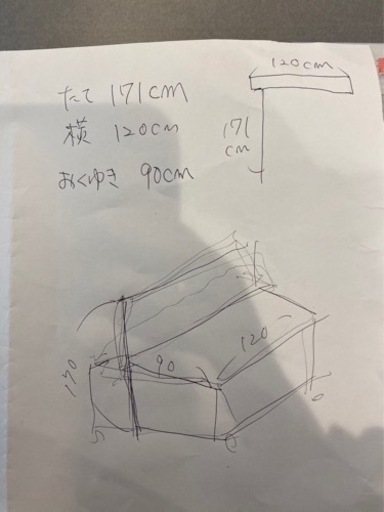 120cm
たて 171cm
横 120cm
171
cm
おくゆき 90cm
120
90
170